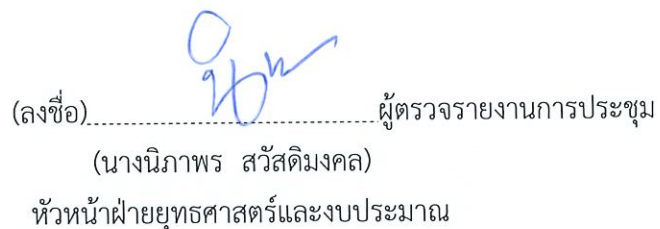 (ลงชื่อ)........................................ผู้ตรวจรายงานการประชุม
(นางนิภาพร สวัสดิมงคล)
หัวหน้าฝ่ายยุทธศาสตร์และงบประมาณ